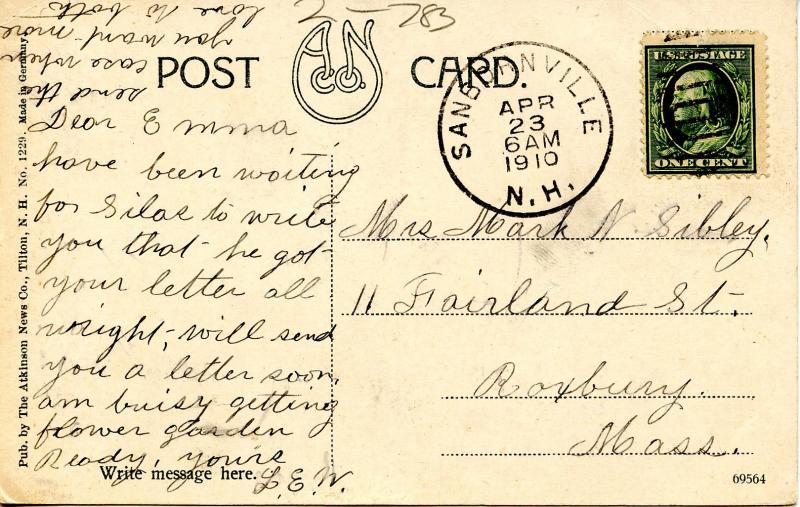 2-783
send the
case when
you want more
love to both
POST CARD.
A N CO.
SANBORNVILLE
APR
23
6AM
1910
N.H.
U.S. POSTAGE
ONE CENT
Dear Emma
have been waiting
for Silas to write
you that he got
your letter all
wright, will send
you a letter soon,
am buisy getting
flower garden
Ready, yours
L.E.W.
Write message here.
Mrs Mark N Sibley,
11 Fairland St.
Roxbury.
Mass.
Pub. by The Atkinson News Co., Tilton, N. H. No. 1229. Made in Germany.
69564